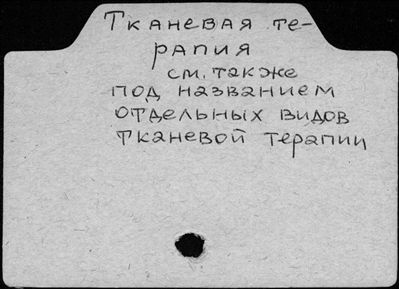 Тканевая те-
рапия
см. также
под названием
отдельных видов
тканевой терапии